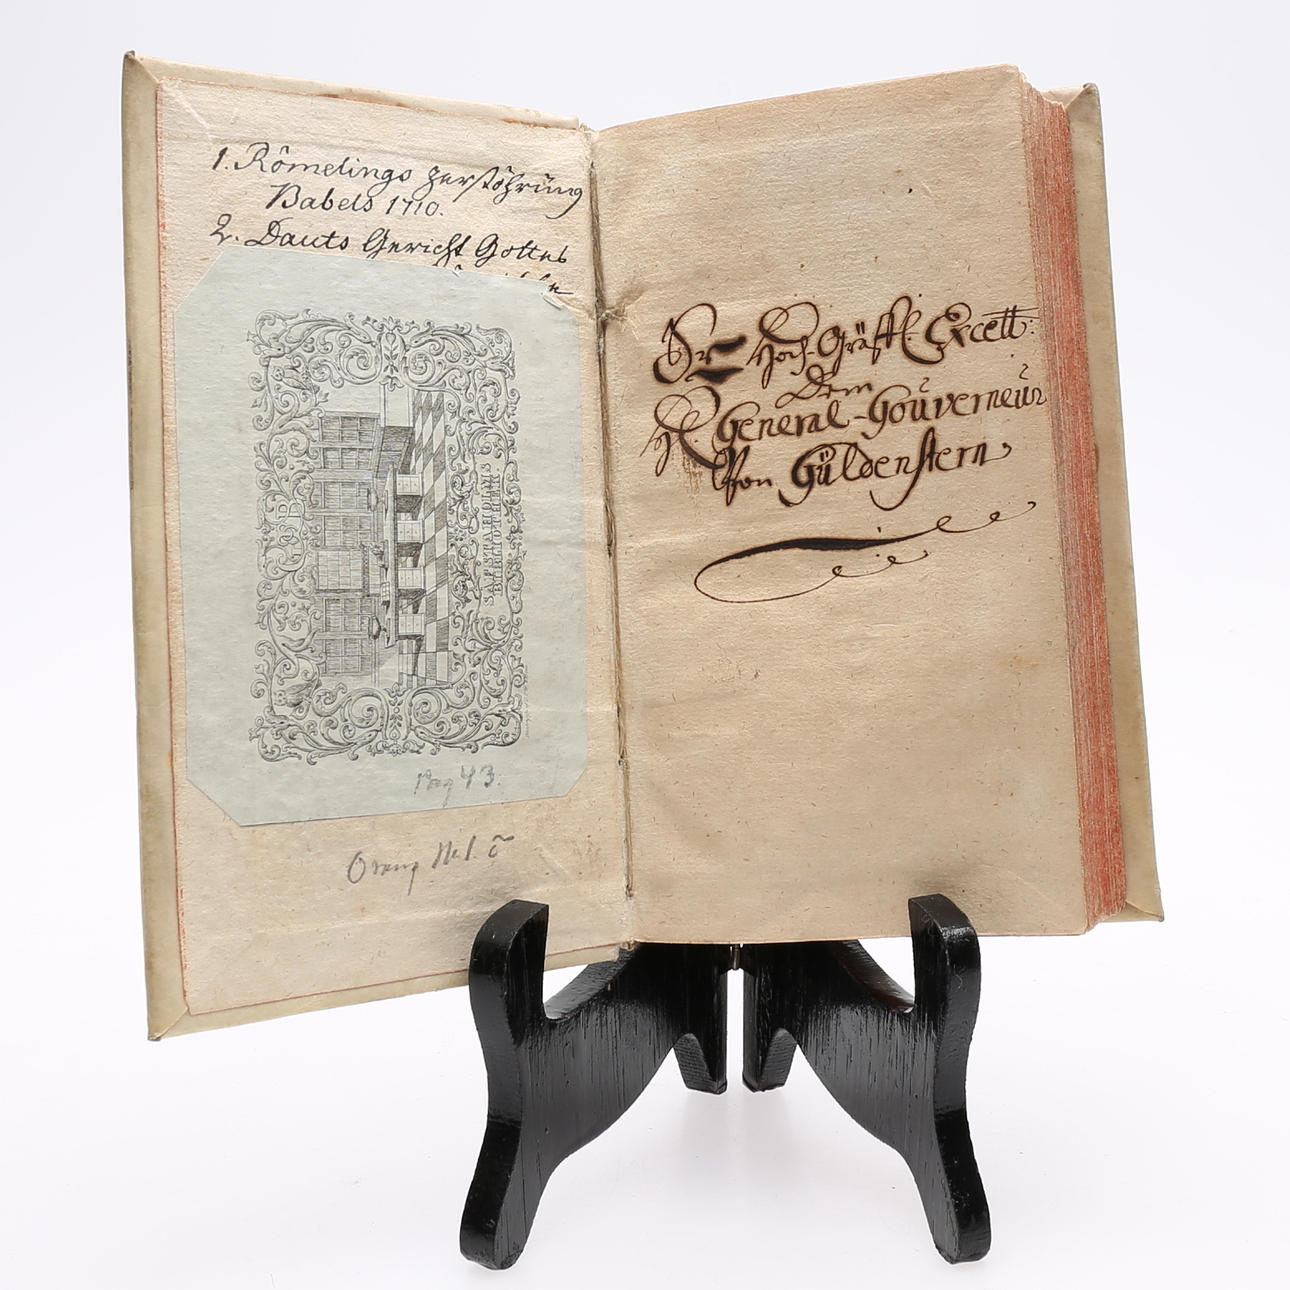 1. Römelings zerstöhrung
Babels 1710.
2. Dauts Gericht Gottes
SÄFSTAHOLMS
BIBLIOTHEK.
Pag 43.
Sr Hoch-Gräffl. Excell:
Dem
H. General-Gouverneur
Von Güldenstern